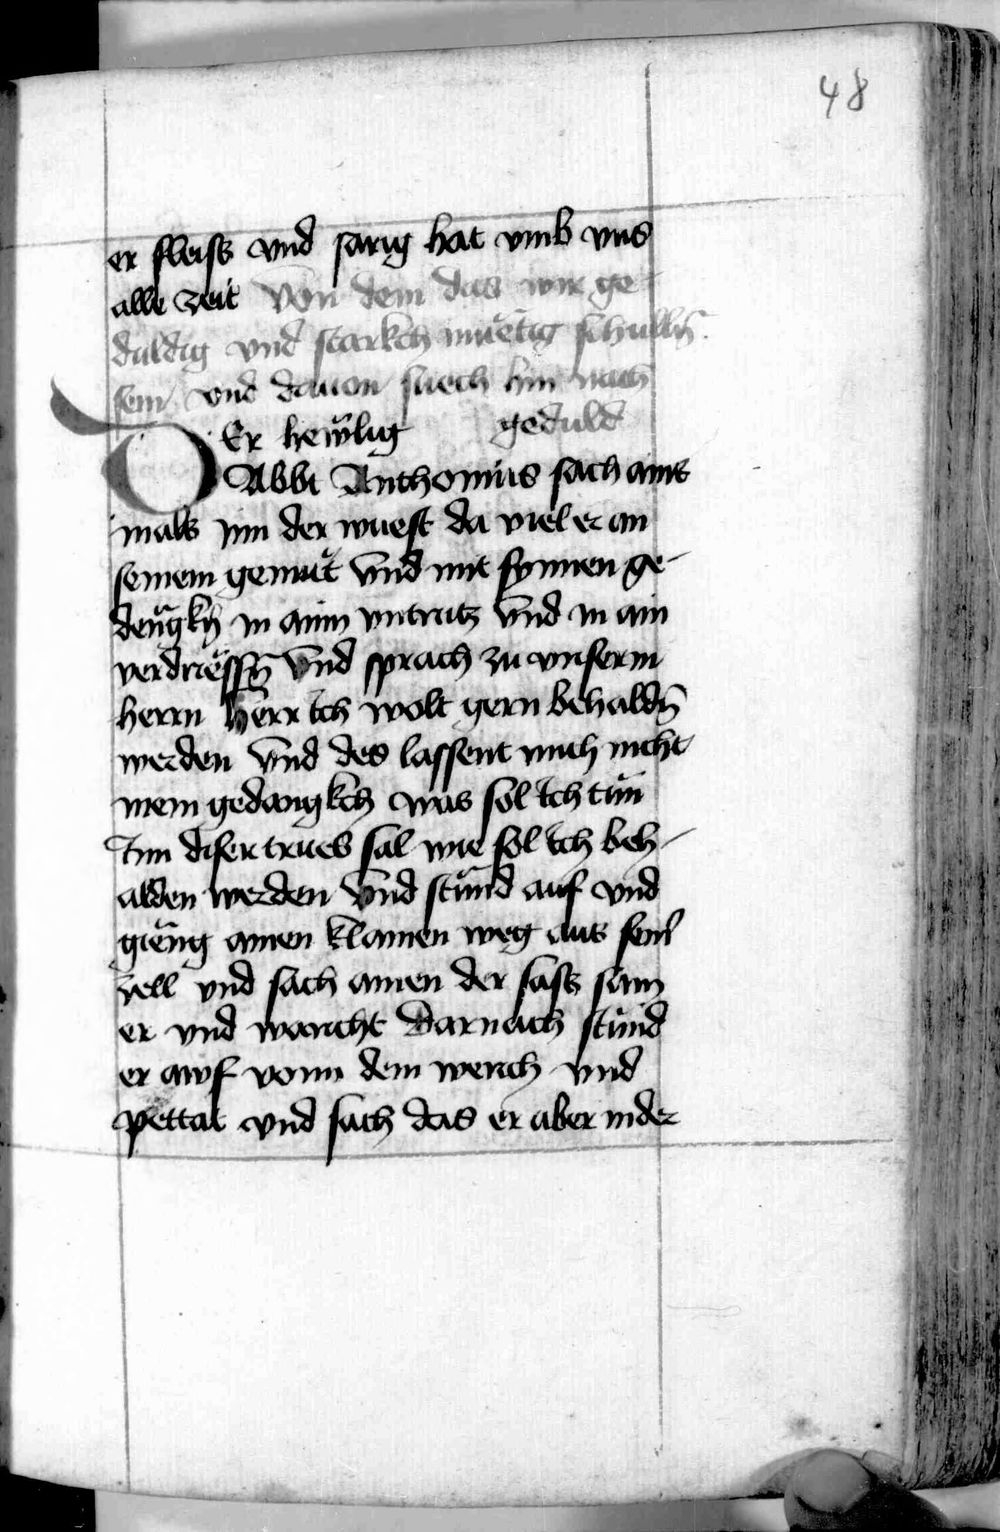 48
er fleiss vnd sarig hat vmb vns
alle zeit Von dem das wir ge-
duldig vnd starkch müetig schulln̄
sein vnd dauon suech hin nach
Er heylig geduld
Abbt Anthonius sach ains
mals ynn der wuest da viel er in
seinem gemüt Vnd mit synnen ge-
dengkn̄ in ainn vntrutz Vnd in ain
verdriessn̄ Vnd sprach zu vnserm
herrn Herr Ich wolt gern behaldn̄
werden Vnd des lassent mich nicht
mein gedangkch was sol Ich tun
Inn diser trueb sal wie sol Ich beh-
alden werden Vnd stund auf vnd
gieng ainen klainen weg aus seiner
zell vnd sach ainen der sass sam
er vnd warcht Darnach stund
er awf vonn dem werch vnd
pettat vnd sach das er aber nider